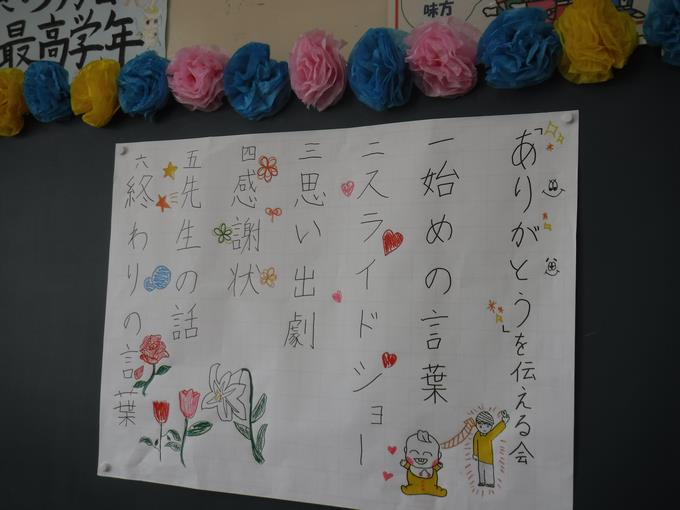 「ありがとう」を伝える会
一 始めの言葉
二 スライドショー
三 思い出劇
四 感謝状
五 先生の話
六 終わりの言葉
味方
最高学年